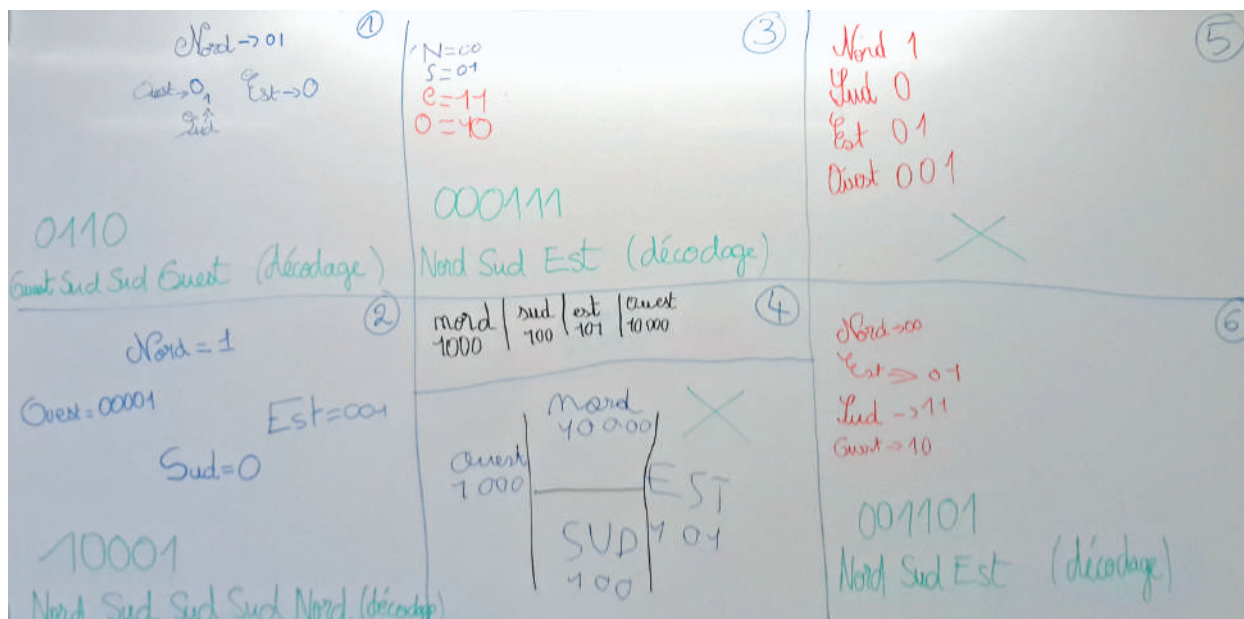 1
Nord → 01
Ouest → 0 Est → 0
1
Sud
0110
Ouest Sud Sud Ouest (décodage)
2
Nord = 1
Ouest = 00001
Est = 001
Sud = 0
10001
Nord Sud Sud Sud Nord (décodage)
3
N = 00
S = 01
e = 11
O = 10
000111
Nord Sud Est (décodage)
4
nord | sud | est | ouest
1000 | 100 | 101 | 10 000
nord
10000
ouest
1000
EST
101
SUD
100
5
Nord 1
Sud 0
Est 01
Ouest 001
6
Nord → 00
Est → 01
Sud → 11
Ouest → 10
001101
Nord Sud Est (décodage)